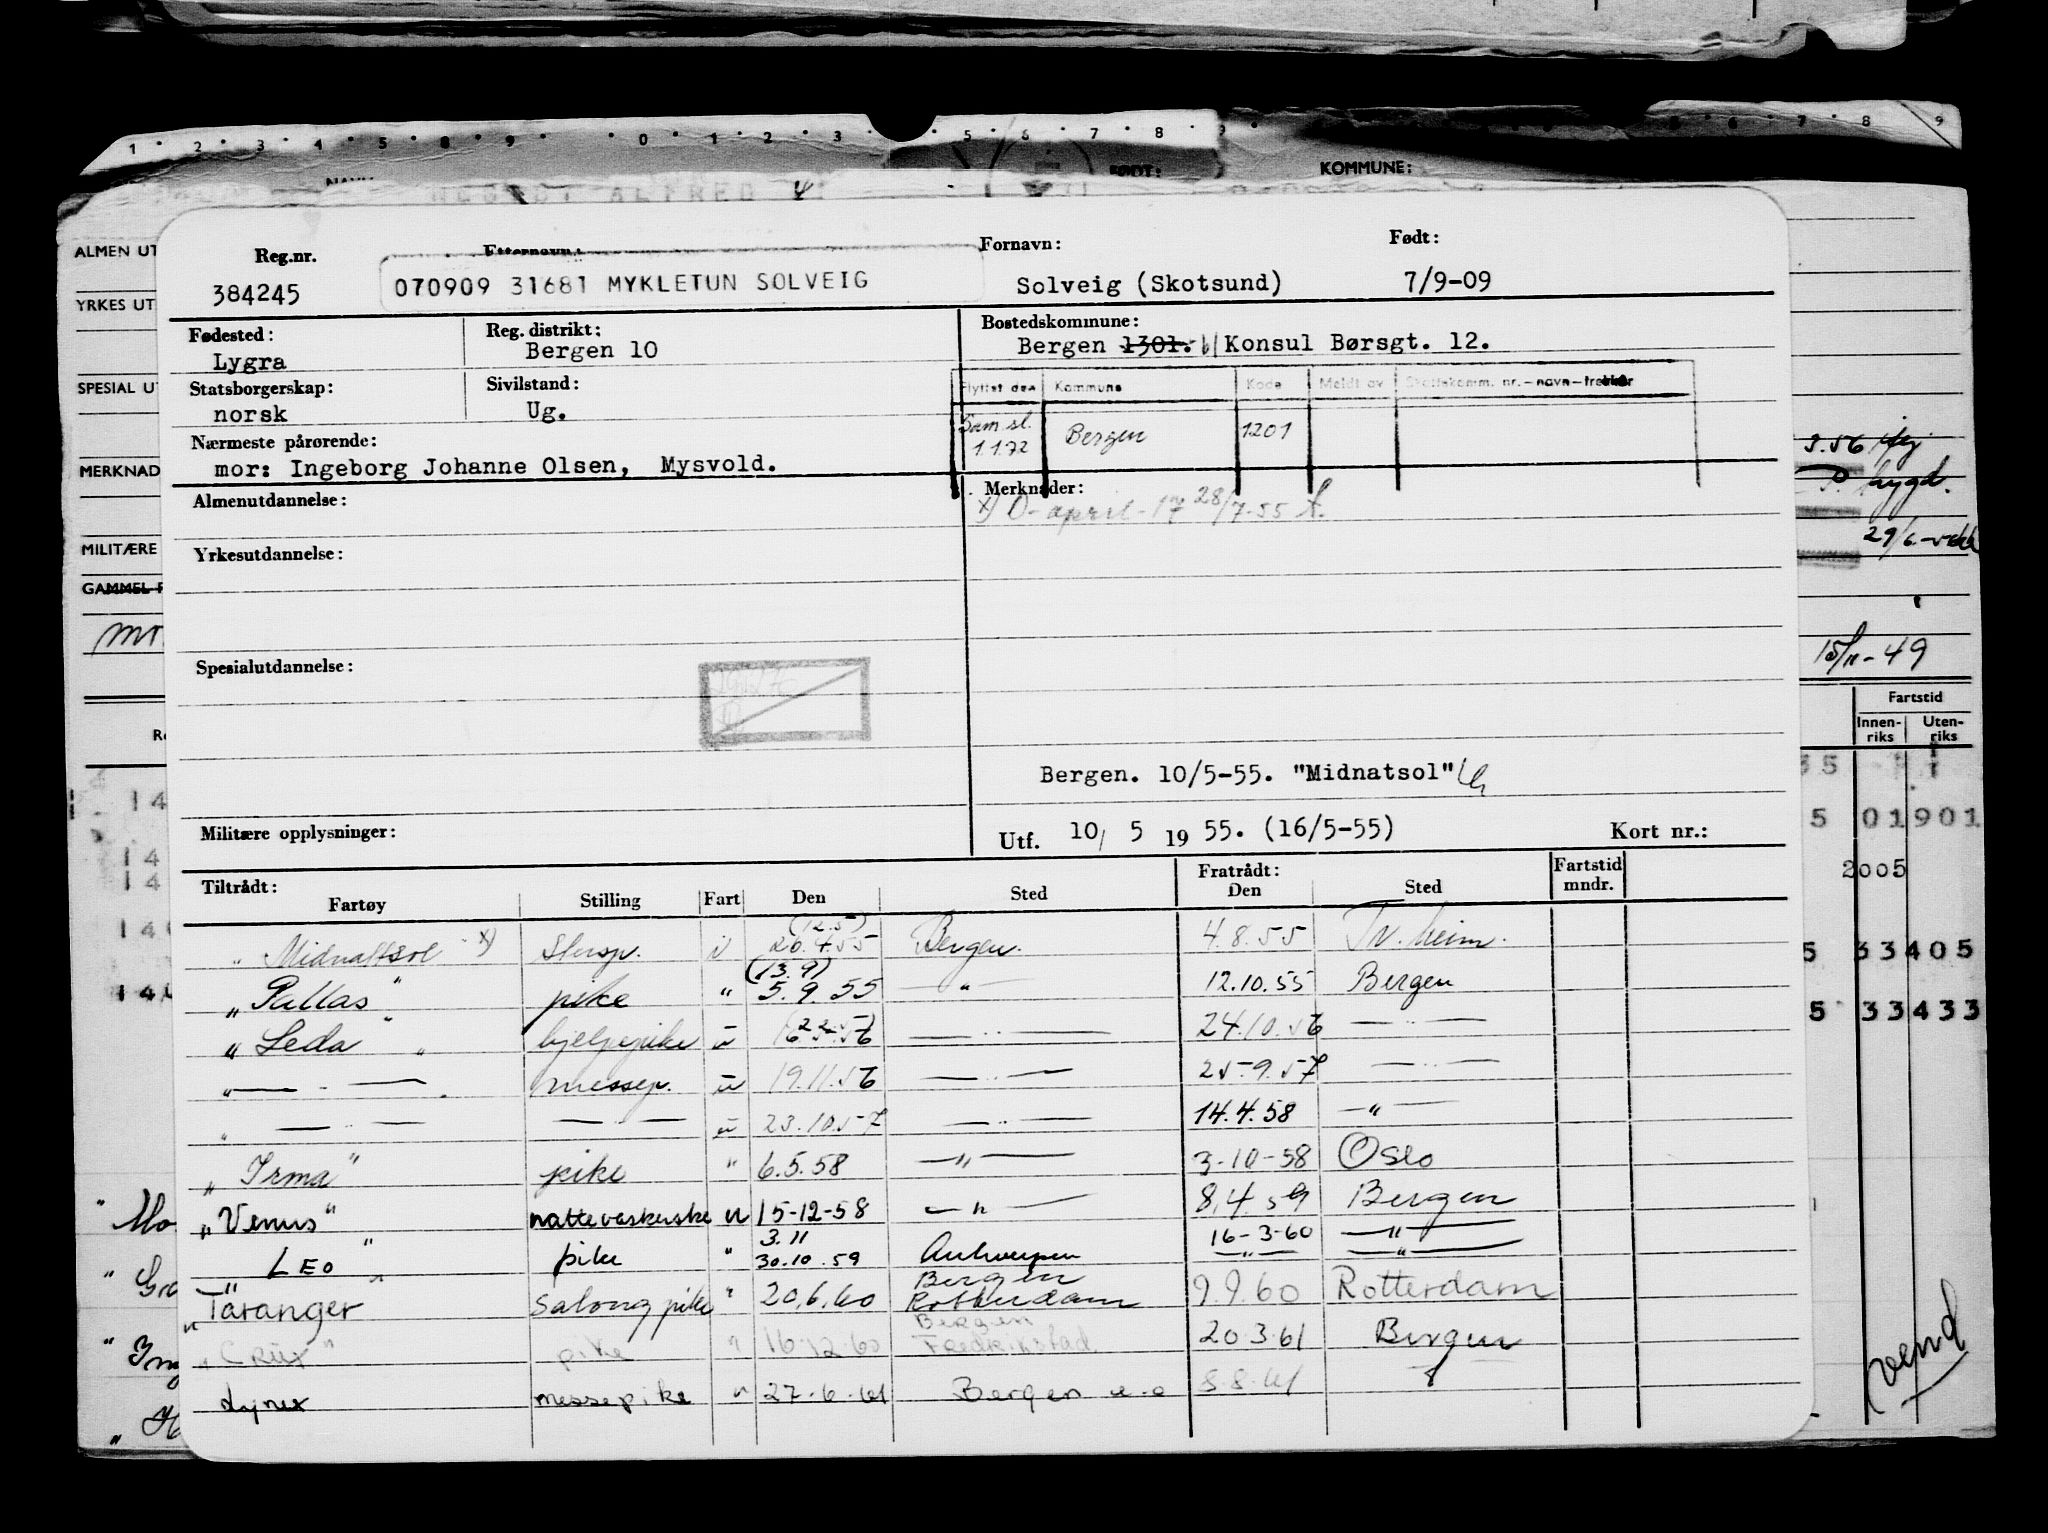 1 2 3 4 5 8 9 0 1 2 3 5 6 7 8 9 5 6 7 8 9
KOMMUNE:
ALMEN UT
YRKES UT
SPESIAL UT
MERKNAD
MILITÆRE
GAMMEL F
Reg.nr. Etternavn: Fornavn: Født:
384245 070909 31681 MYKLETUN SOLVEIG Solveig (Skotsund) 7/9-09
Fødested: Reg. distrikt: Bostedskommune:
Lygra Bergen 10 Bergen 1301. Konsul Børsgt. 12.
Statsborgerskap: Sivilstand: Flyttet den Kommune Kode Meldt av Skattekomm. nr.-navn-trekkår
norsk Ug. Sam.sl. 1.1.72 Bergen 1201
Nærmeste pårørende:
mor: Ingeborg Johanne Olsen, Mysvold.
Almenutdannelse: Merknader:
x) O-april-17 28/7-55
Yrkesutdannelse:
Spesialutdannelse:
Bergen. 10/5-55. "Midnatsol"
Militære opplysninger: Utf. 10/ 5 19 55. (16/5-55) Kort nr.:
Tiltrådt: Fratrådt: Fartstid mndr.
Fartøy Stilling Fart Den Sted Den Sted
" Midnattsol x) (12.5) 26.4.55 Bergen. 4.8.55 Tr.heim.
" Pallas " pike " (13.9) 5.9.55 — " — 12.10.55 Bergen
" Leda " hjelpepike u (22.5) 16.5.56 — " — 24.10.56 — " —
" — " — messep. u 19.11.56 — " — 25.9.57 — " —
" — " — — " — u 23.10.57 — " — 14.4.58 — " —
" Irma " pike " 6.5.58 — " — 3-10-58 Oslo
" Venus " nattevaskerske u 15-12-58 — " — 8.4.59 Bergen
" LEO " pike " 3.11 30.10.59 Antwerpen 16-3-60 — " —
" Taranger " Salongpike " 20.6.60 Bergen Rotterdam 9.9.60 Rotterdam
" Crux " pike " 16.12.60 Bergen Fredrikstad 20.3.61 Bergen
Lynx messepike u 27.6.61 Bergen 8.8.61
15/11-49
Fartstid
Innen-riks Uten-riks
5 01901
2005
5 33405
5 33433
vend